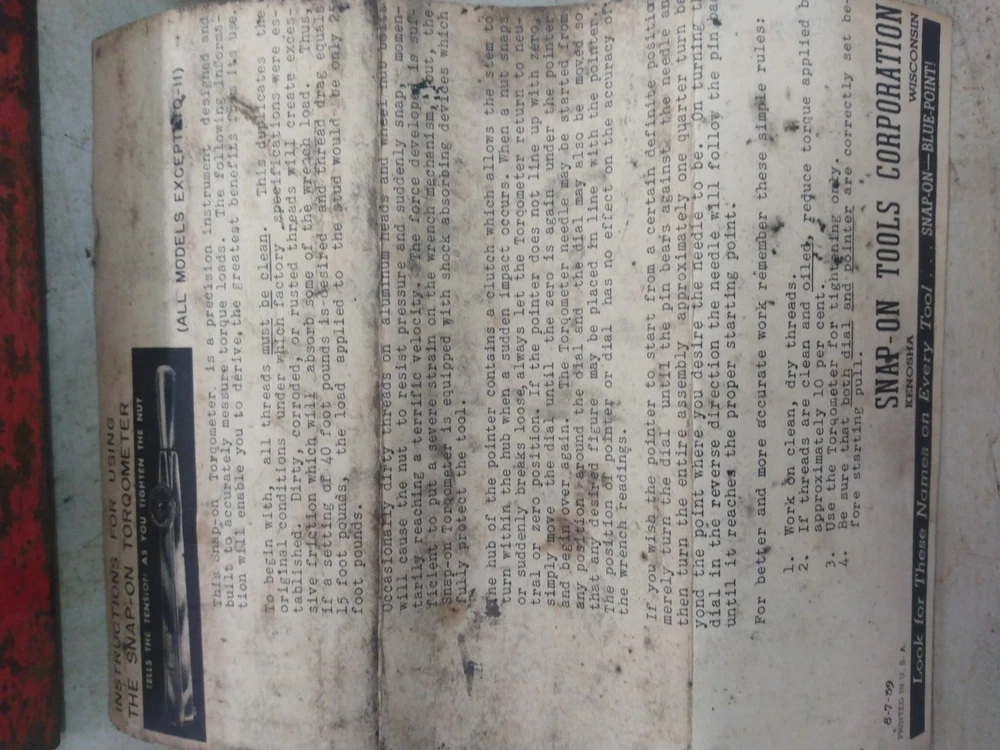 INSTRUCTIONS FOR USING
THE SNAP-ON TORQOMETER
TELLS THE TENSION AS YOU TIGHTEN THE NUT
(ALL MODELS EXCEPT TQ-11)
This Snap-on Torqometer is a precision instrument designed and
built to accurately measure torque loads. The following informa-
tion will enable you to derive the greatest benefits from its use.
To begin with, all threads must be clean. This duplicates the
original conditions under which factory specifications were es-
tablished. Dirty, corroded, or rusted threads will create exces-
sive friction which will absorb some of the wrench load. Thus,
if a setting of 40 foot pounds is desired and thread drag equals
15 foot pounds, the load applied to the stud would be only 25
foot pounds.
Occasionally dirty threads on aluminum heads and wheel nut bolts
will cause the nut to resist pressure and suddenly snap, momen-
tarily reaching a terrific velocity. The force developed is suf-
ficient to put a severe strain on the wrench mechanism, but, the
Snap-on Torqometer is equipped with shock absorbing devices which
fully protect the tool.
The hub of the pointer contains a clutch which allows the stem to
turn within the hub when a sudden impact occurs. When a nut snaps
or suddenly breaks loose, always let the Torqometer return to neu-
tral or zero position. If the pointer does not line up with zero,
simply move the dial until the zero is again under the pointer
and begin over again. The Torqometer needle may be started from
any position around the dial and the dial may also be moved so
that any desired figure may be placed in line with the pointer.
The position of pointer or dial has no effect on the accuracy of
the wrench readings.
If you wish the pointer to start from a certain definite position
merely turn the dial until the pin bears against the needle and
then turn the entire assembly approximately one quarter turn be-
yond the point where you desire the needle to be. On turning the
dial in the reverse direction the needle will follow the pin back
until it reaches the proper starting point.
For better and more accurate work remember these simple rules:
1. Work on clean, dry threads.
2. If threads are clean and oiled, reduce torque applied by
approximately 10 per cent.
3. Use the Torqometer for tightening only.
4. Be sure that both dial and pointer are correctly set be-
fore starting pull.
8-7-59
PRINTED IN U.S.A.
SNAP-ON TOOLS CORPORATION
KENOSHA WISCONSIN
Look for These Names on Every Tool . . . SNAP-ON—BLUE-POINT!